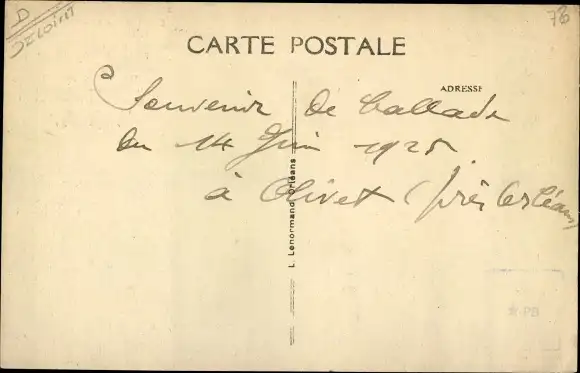 D
LOIRET
78
CARTE POSTALE
ADRESSE
Souvenir de ballade
du 14 Juin 1925
à Olivet (près Orléans
L. Lenormand, Orléans
PB